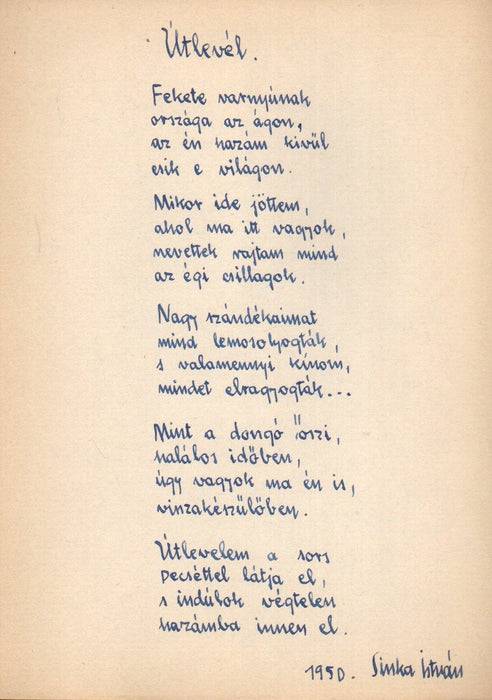 Útlevél.
Fekete varnyúnak
országa az ágon,
az én hazám kívül
esik e világon.
Mikor ide jöttem,
ahol ma itt vagyok,
nevettek rajtam mind
az égi csillagok.
Nagy szándékaimat
mind lemosolyogták,
s valamennyi kínom,
mindet elragyogták...
Mint a dongó őszi,
halálos időben,
úgy vagyok ma én is,
visszakészülőben.
Útlevelem a sors
pecséttel látja el,
s indúlok végtelen
hazámba innen el.
1950. Sinka István